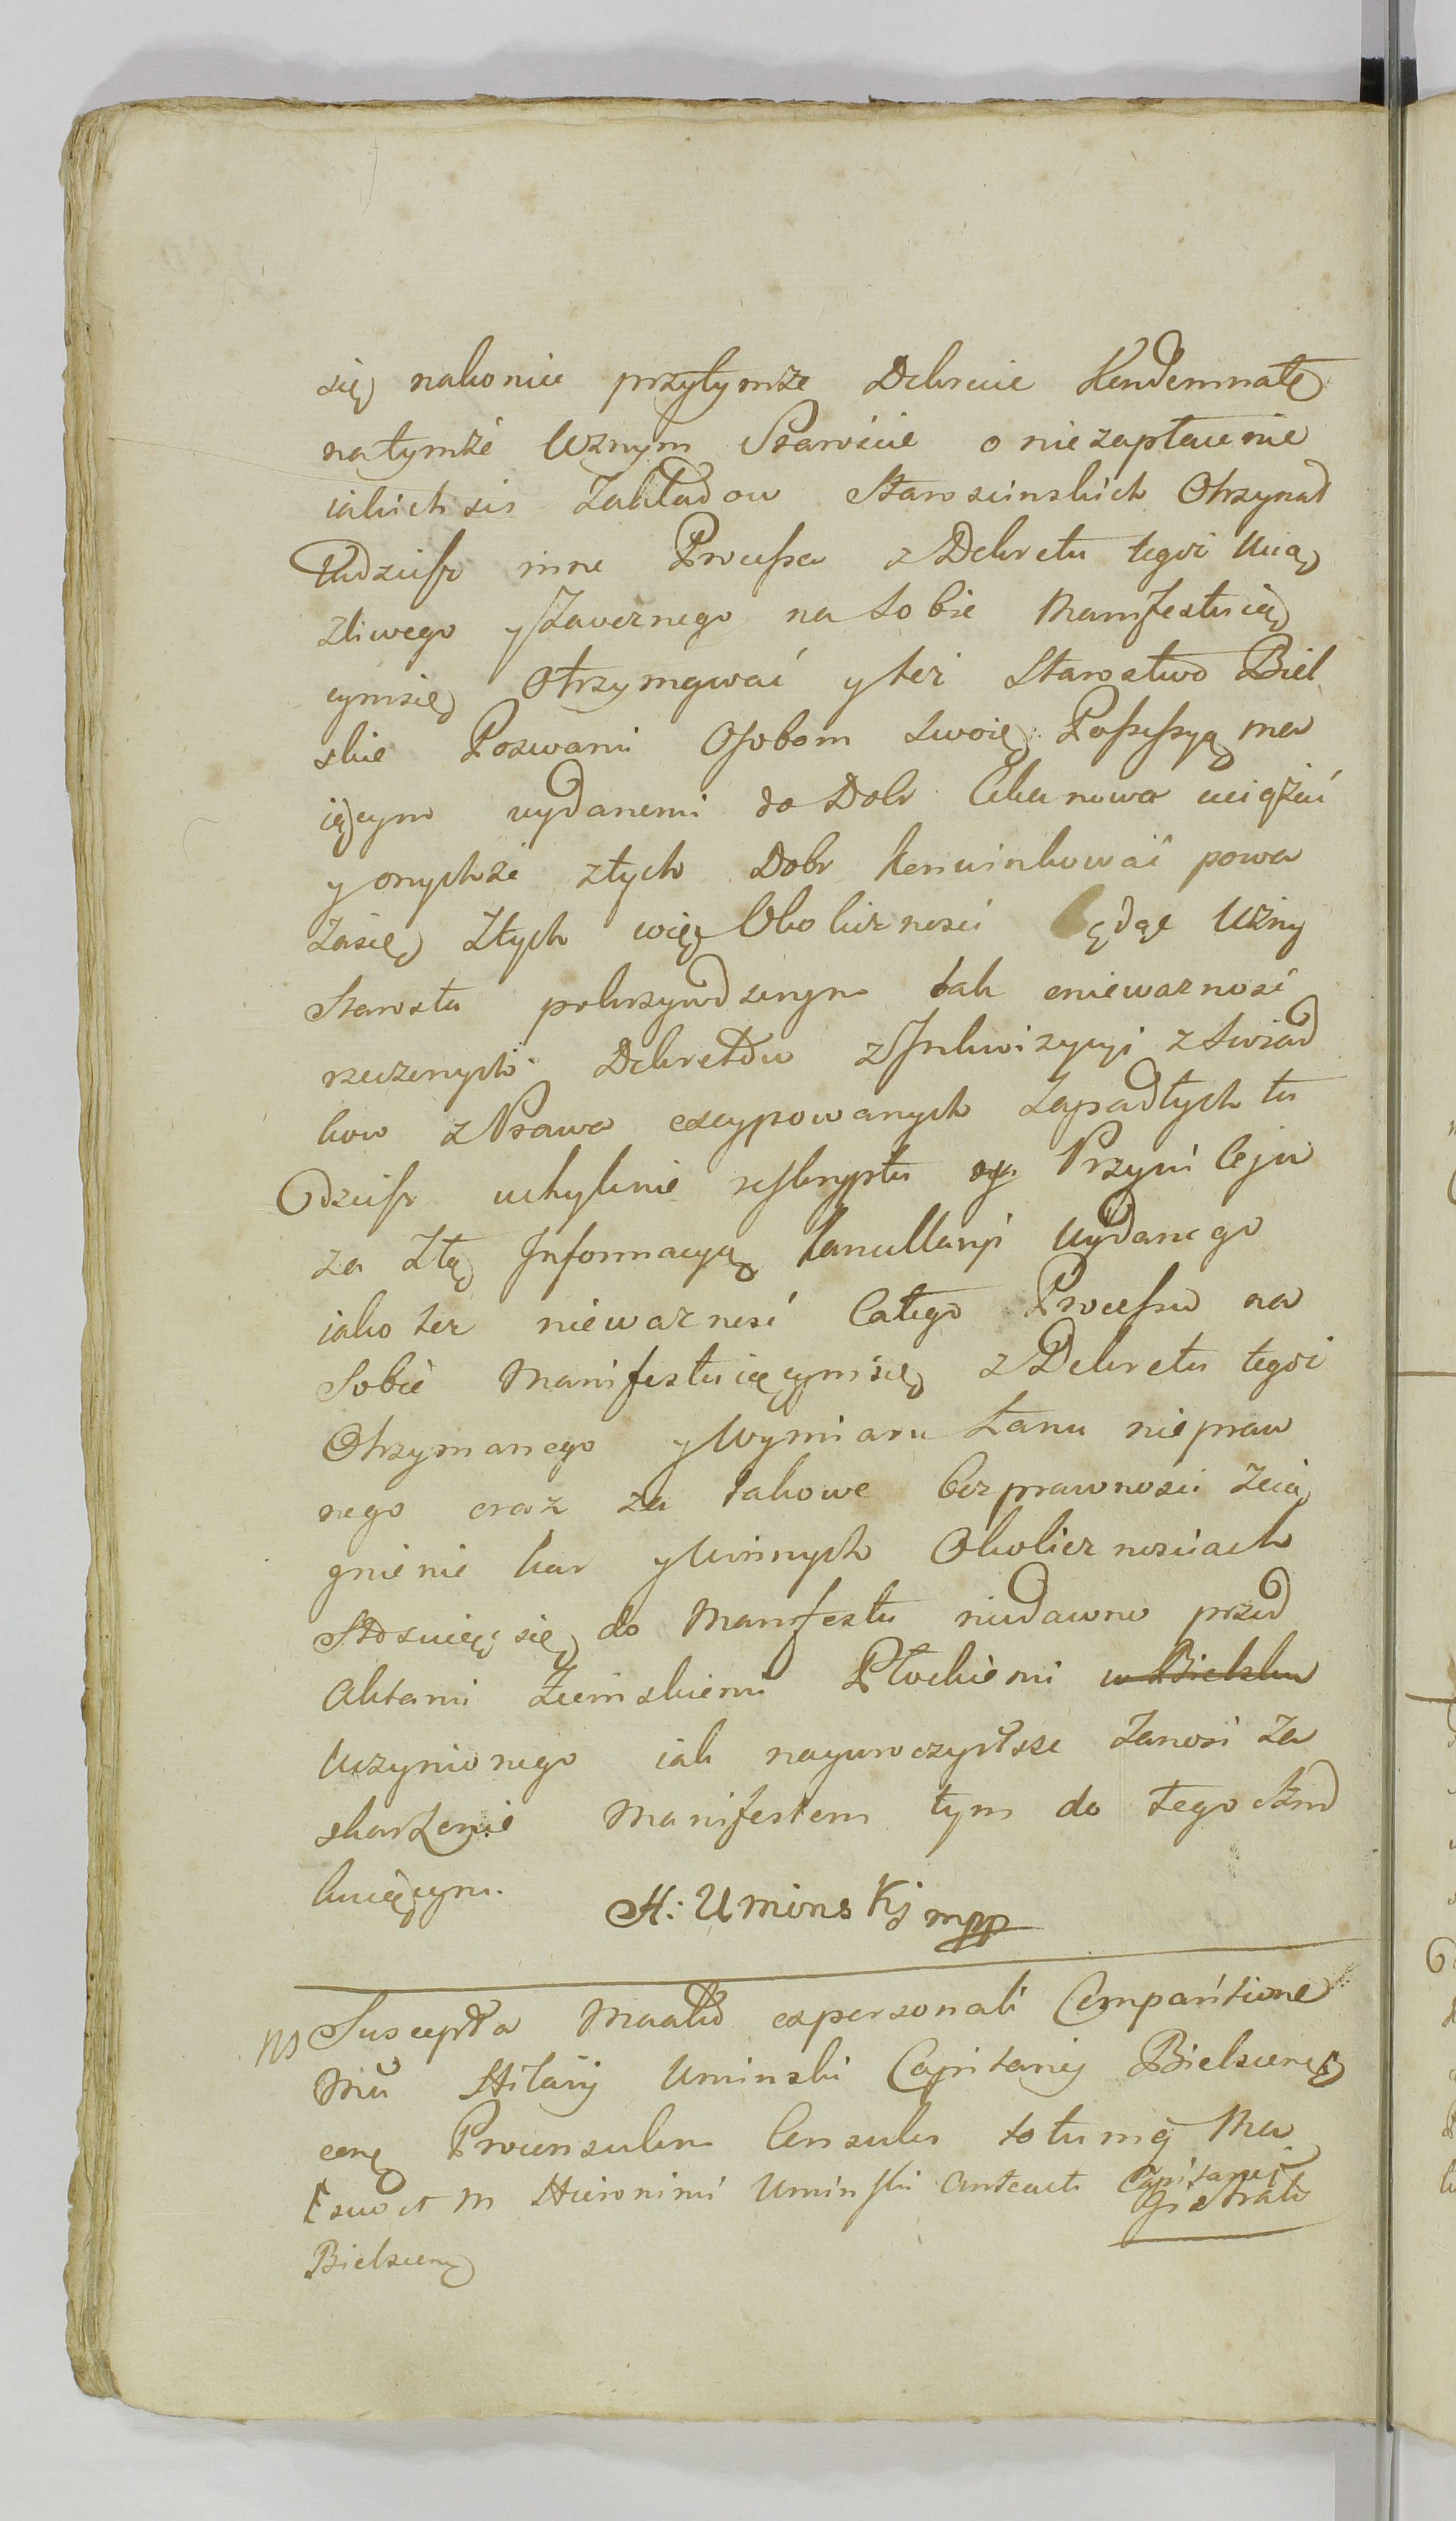 się nakoniec przytymże Dekrecie Kondemnatę
natymże Wznym Staroście o niezapłacenie
iakichsis Zakładow Starościnskich Otrzymał
Tudzieſz inne Proceſsa z Dekretu tegoż Ucią
żliwego y Zaocznego na sobie Manifestuią
cymsię Otrzymywać y też Starostwo Biel
skie Pozwami Osobom swoię Poſseſsyą ma
iącym wydanemi do Dobr Cekanowa uciążać
y onychże z tych Dobr konwinkować powa
żasię Z tych więc Okolicznosci będąc Wżny
Starosta pokrzywdzonym tak o nieważnosć
rzeczonych Dekretow z Inkwizycyi z Swiad
kow z Prawa excypowanych Zapadłych tu
dzieſz uchylenie reskryptu Przywileju
za Złą Informacyą Kancellaryi Wydanego
iako tez nieważnosć Całego Proceſsu na
Sobie Manifestuiącymsię z Dekretu tegoż
Otrzymanego y Wymiaru Łanu niepraw
nego oraz za takowe bezprawnosci Ścią
gnienie kar y Winnych Okolicznosciach
Stosuiąc się do Manifestu niedawno przed
Aktami Ziemskiemi Płockiemi w Bielsku
Uczynionego iak nayuroczyst sze Zanosi Za
skarżenie Manifestem tym do tego Stand
kuiącym.
H: Uminskj mpp
NS Suscepta Maald ex personali Comparitione
Mci Hilarij Uminski Capitanej Bielscensę
cenę Proconsulem Consules totumq Ma
gistrat
[suo et M Hieronimi Uminſki anteacti Capitanei
Bielscensę